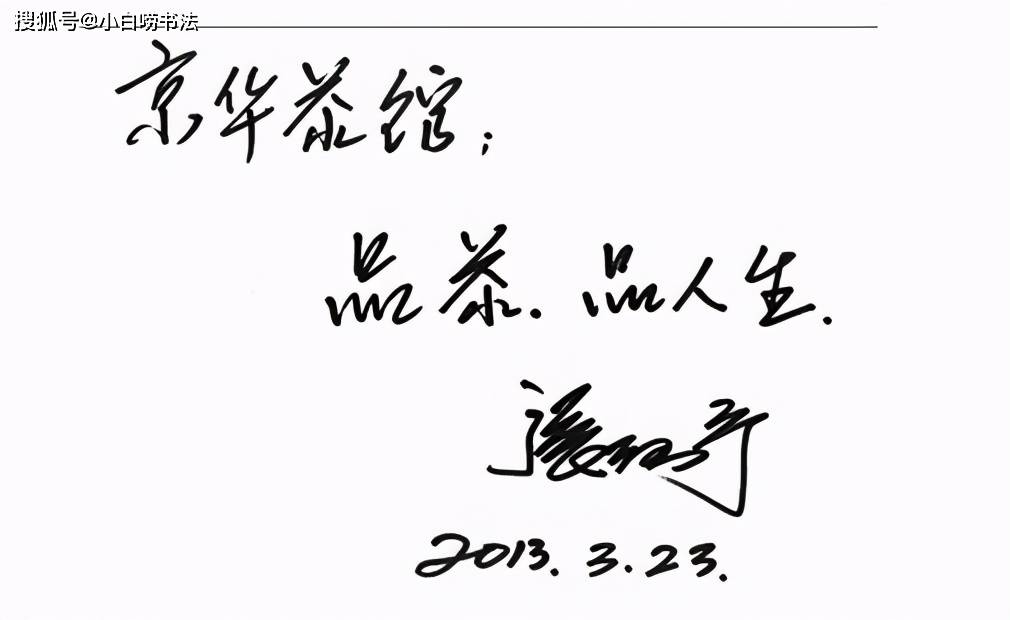 搜狐号@小白唠书法
京华茶馆:
品茶.品人生.
張
2013.3.23.